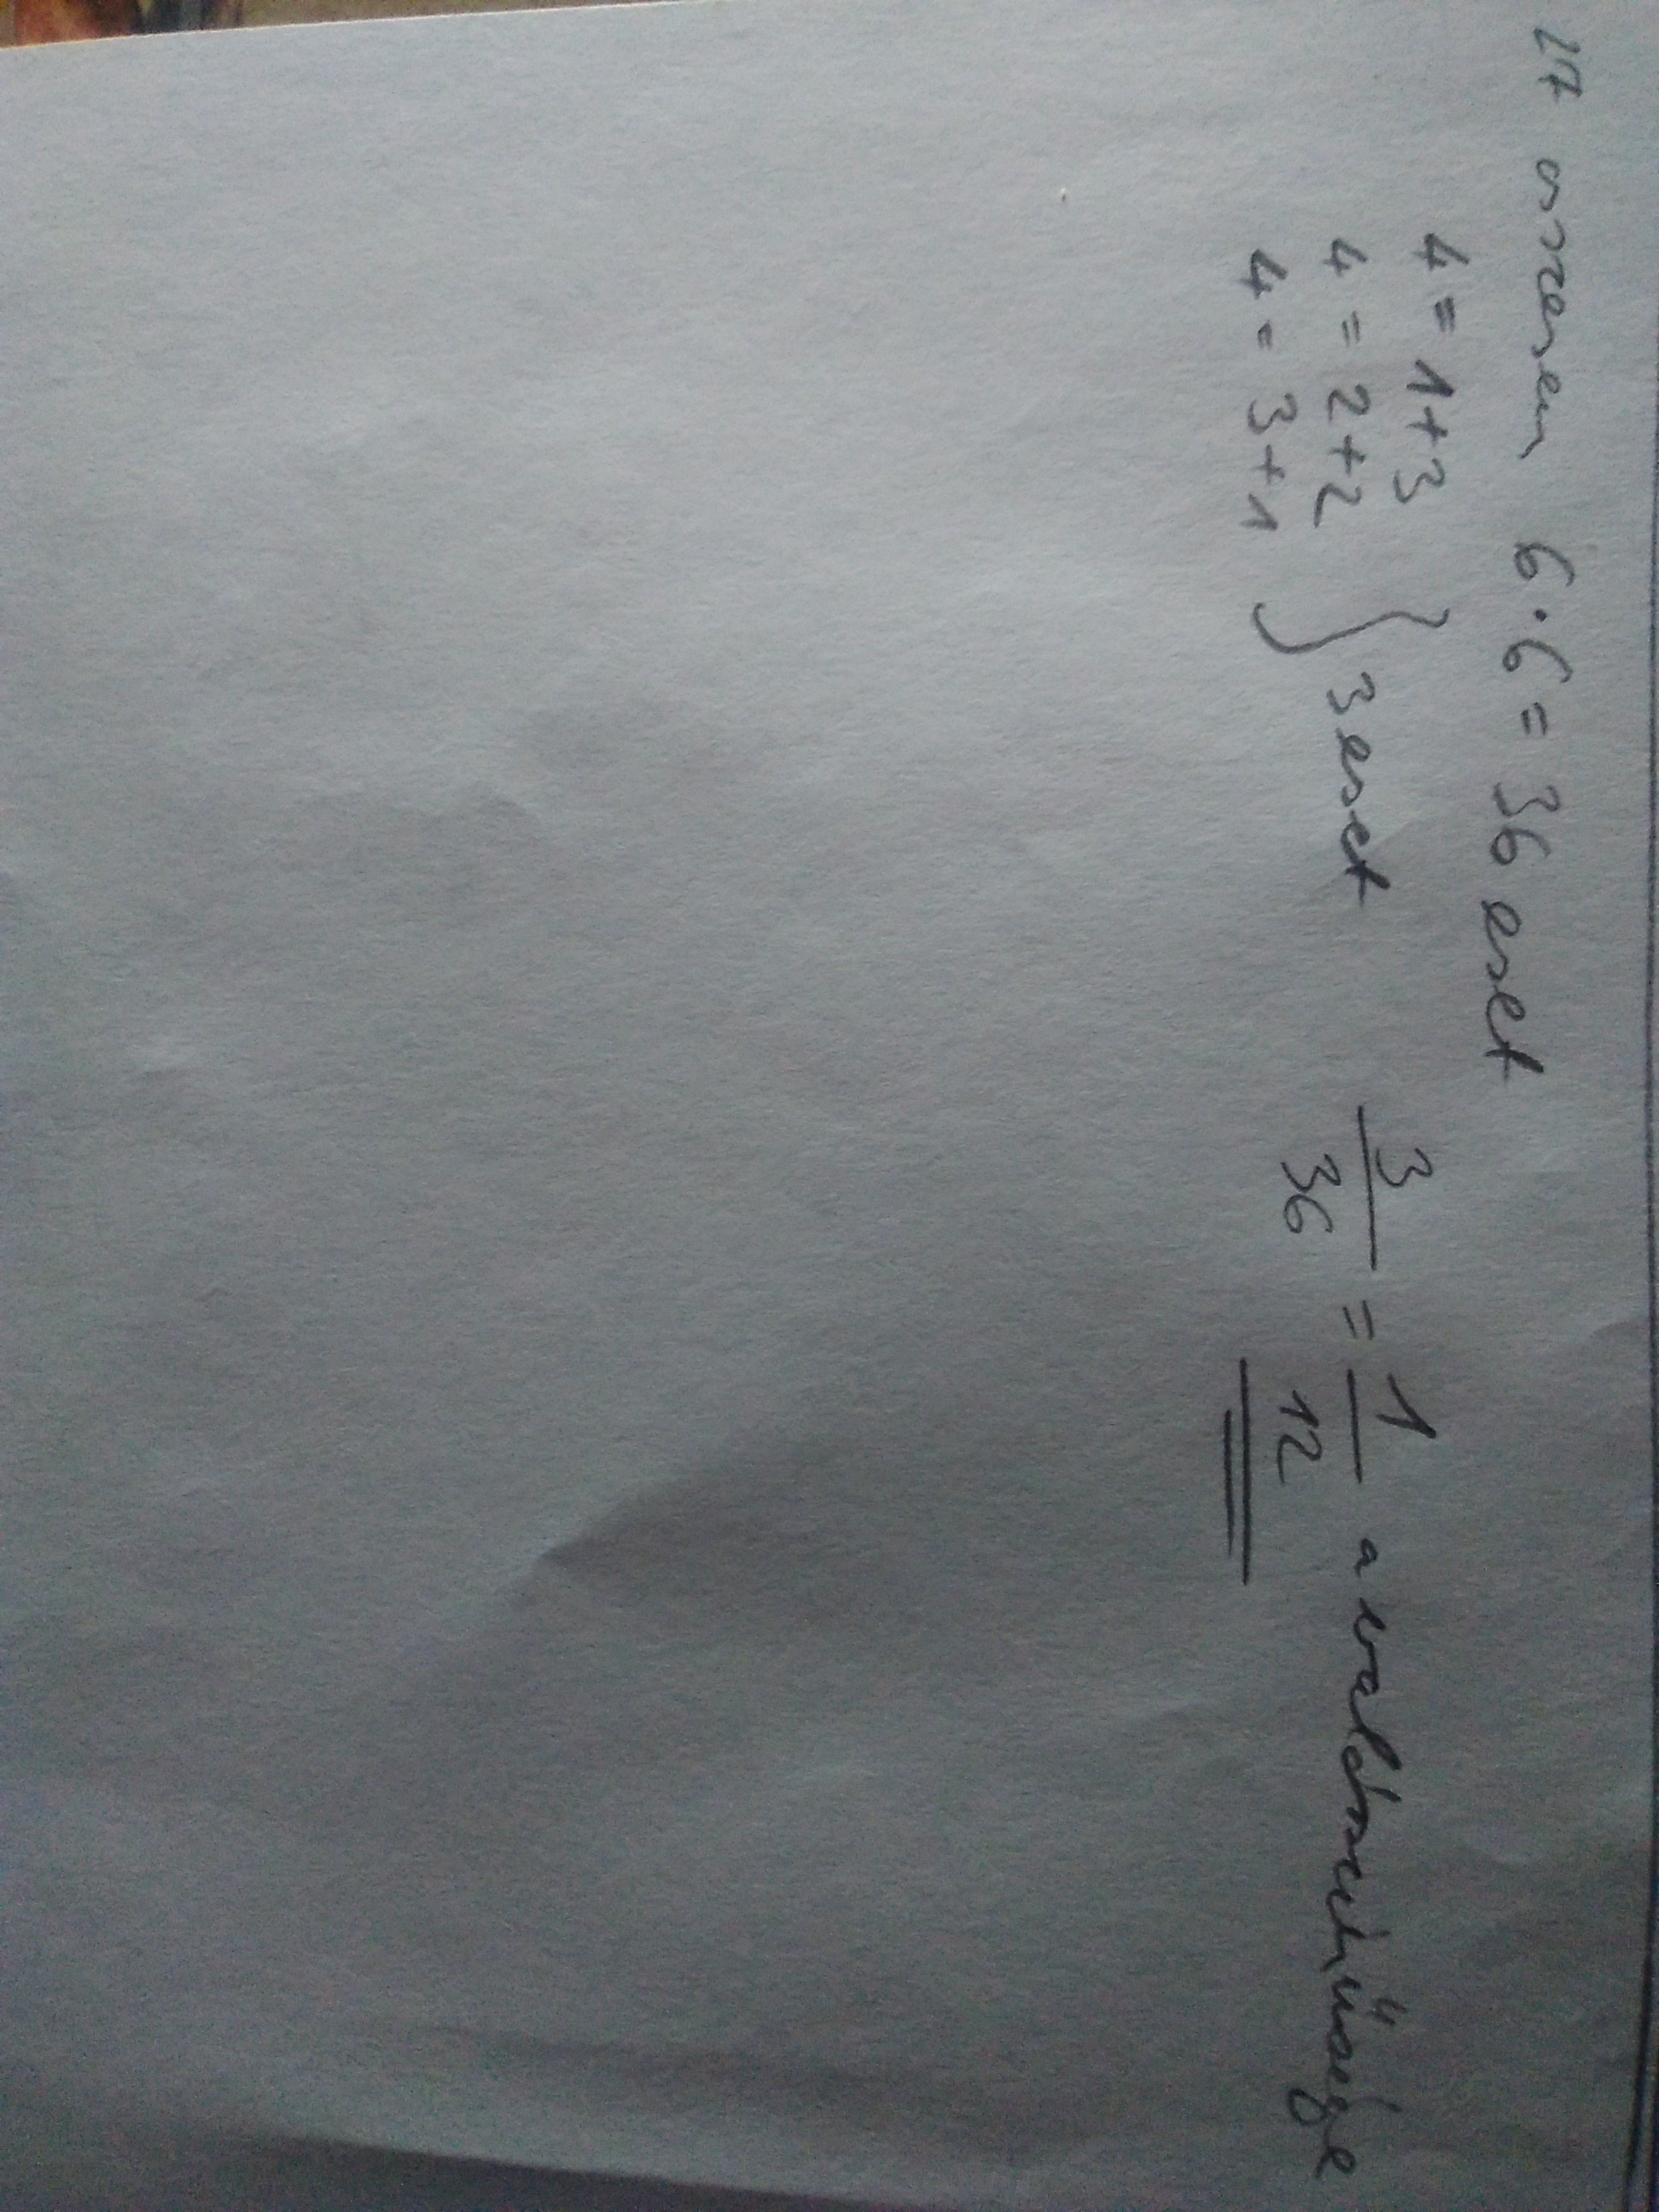 27 összesen 6·6=36 eset
4=1+3
4=2+2 } 3 eset 3/36 = 1/12 a valószínűsége
4=3+1